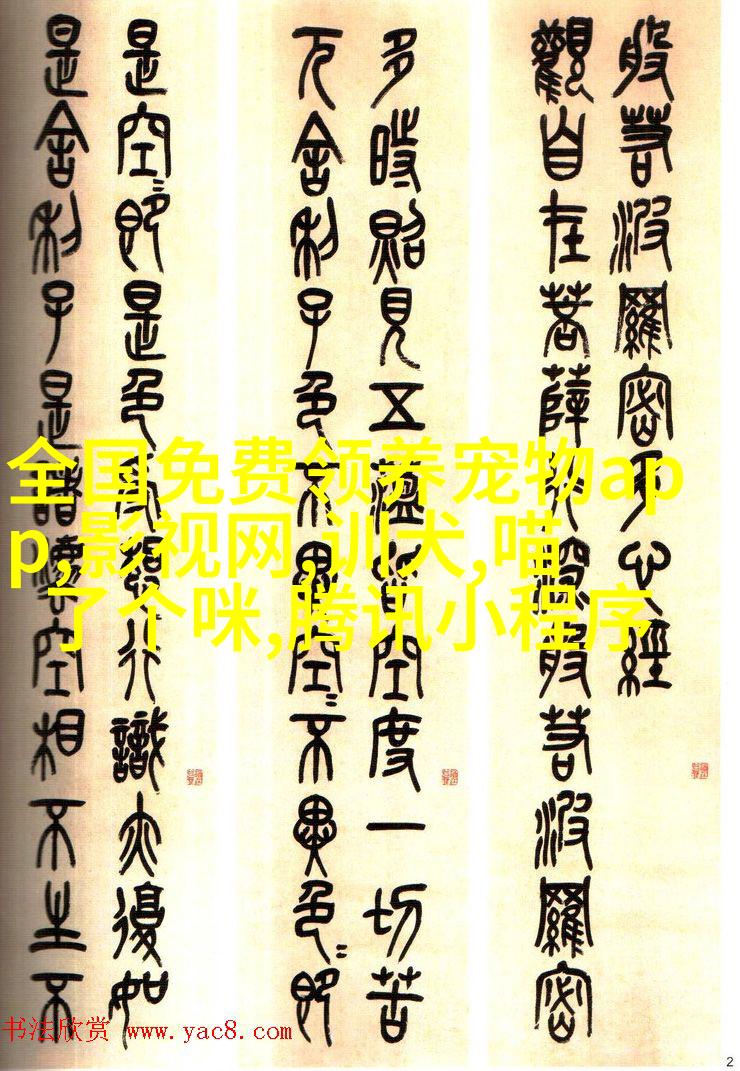 般若波羅密多心經
觀自在菩薩行深般若波羅密
多時照見五蘊皆空度一切苦
厄舍利子色不異空〻不異色〻即
是空〻即是色受想行識亦復如
是舍利子是諸法空相不生不
全国免费领养宠物ap
p,影视网,训犬,喵
了个咪,腾讯小程序
书法欣赏 www.yac8.com
2